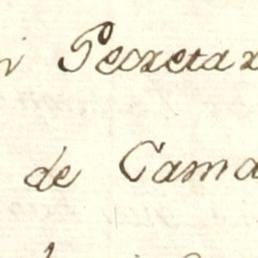 i Secretar
de Cama